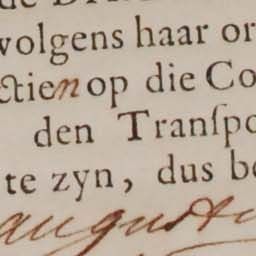 volgens haar or
ctien op die Co
den Tranſpo
te zyn, dus be
augusti